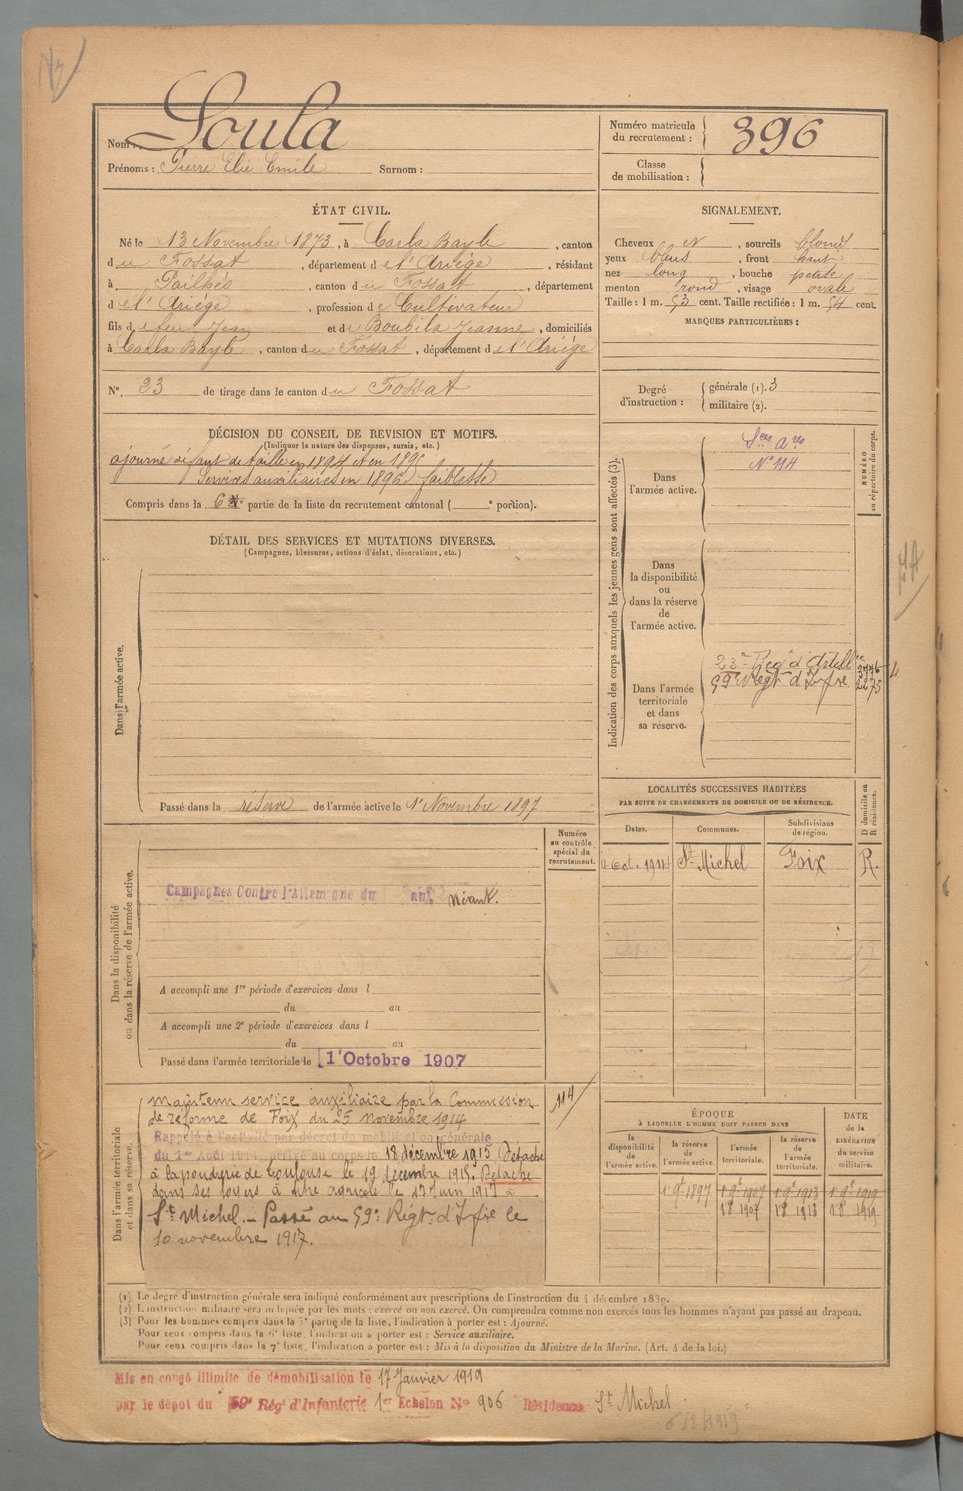 Nom : Soula
Prénoms : Pierre Elie Emile Surnom :
Numéro matricule du recrutement : 396
Classe de mobilisation :
ÉTAT CIVIL.
Né le 13 Novembre 1873, à Carla Bayle, canton
du Fossat, département de l'Ariège, résidant
à Pailhès, canton du Fossat, département
de l'Ariège, profession de Cultivateur
fils de feu Jean et de Boubila Jeanne, domiciliés
à Carla Bayle, canton du Fossat, département de l'Ariège
N°. 33 de tirage dans le canton du Fossat
SIGNALEMENT.
Cheveux N, sourcils blonds
yeux bleus, front haut
nez long, bouche petite
menton rond, visage ovale
Taille : 1 m. 53 cent. Taille rectifiée : 1 m. 54 cent.
MARQUES PARTICULIÈRES :
Degré d'instruction : générale (1). 3
militaire (2).
DÉCISION DU CONSEIL DE REVISION ET MOTIFS.
(Indiquer la nature des dispenses, sursis, etc.)
ajourné défaut de taille en 1894 et en 1895
Services auxiliaires en 1896 faiblesse
Compris dans la 6e partie de la liste du recrutement cantonal ( e portion).
DÉTAIL DES SERVICES ET MUTATIONS DIVERSES.
(Campagnes, blessures, actions d'éclat, décorations, etc.)
Dans l'armée active.
Passé dans la réserve de l'armée active le 1er Novembre 1897
Indication des corps auxquels les jeunes gens sont affectés (3).
NUMÉRO au répertoire du corps.
Dans l'armée active.
Sces Ares
N° 114
Dans la disponibilité ou dans la réserve de l'armée active.
Dans l'armée territoriale et dans sa réserve.
23e Regt d'Artillie 3776
59e Regt d'Infie 2275
LOCALITÉS SUCCESSIVES HABITÉES
PAR SUITE DE CHANGEMENTS DE DOMICILE OU DE RÉSIDENCE.
Dates. Communes. Subdivisions de région. D domicile ou R résidence.
4 Oct. 1914 St Michel Foix R.
Numéro au contrôle spécial du recrutement.
114
Dans la disponibilité ou dans la réserve de l'armée active.
Campagnes Contre l'Allemagne du au néant.
A accompli une 1re période d'exercices dans l
du au
A accompli une 2e période d'exercices dans l
du au
Passé dans l'armée territoriale le 1er Octobre 1907
Dans l'armée territoriale et dans sa réserve.
maintenu service auxiliaire par la Commission
de réforme de Foix du 25 novembre 1914
Rappelé à l'activité par décret de mobilisation générale
du 1er Août 1914, arrivé au corps le 18 décembre 1915 Détaché
à la poudrerie de Toulouse le 19 décembre 1915. Détaché
dans ses foyers à titre agricole le 17 Juin 1917 à
St Michel. – Passé au 59e Régt d'Infie le
10 novembre 1917.
ÉPOQUE
À LAQUELLE L'HOMME DOIT PASSER DANS
la disponibilité de l'armée active. la réserve de l'armée active. l'armée territoriale. la réserve de l'armée territoriale. DATE de la LIBÉRATION du service militaire.
(1) Le degré d'instruction générale sera indiqué conformément aux prescriptions de l'instruction du 4 décembre 1889.
(2) L'instruction militaire sera indiquée par les mots : exercé ou non exercé. On comprendra comme non exercés tous les hommes n'ayant pas passé au drapeau.
(3) Pour les hommes compris dans la 5e partie de la liste, l'indication à porter est : Ajourné.
Pour ceux compris dans la 6e liste, l'indication à porter est : Service auxiliaire.
Pour ceux compris dans la 7e liste, l'indication à porter est : Mis à la disposition du Ministre de la Marine. (Art. 4 de la loi.)
Mis en congé illimité de démobilisation le 17 Janvier 1919
par le dépôt du 59e Régt d'Infanterie 1er Echelon N° 906 Résidence St Michel